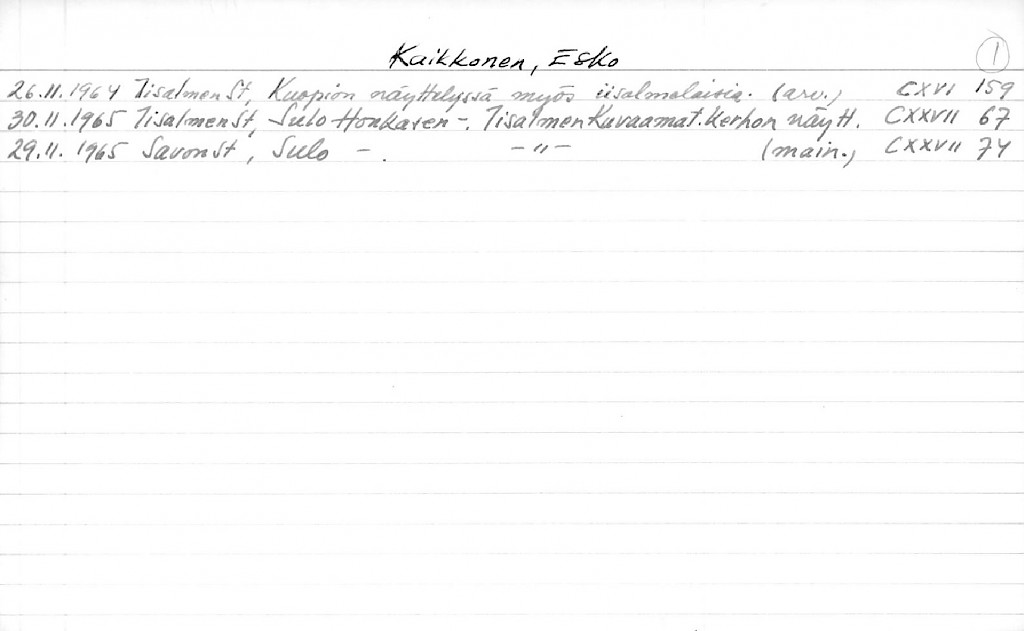 Kaikkonen, Esko
1
26.11.1964 Iisalmen St, Kuopion näyttelyssä myös iisalmelaisia. (arv.) CXVI 159
30.11.1965 Iisalmen St, Sulo Honkanen -. Iisalmen Kuvaamat.kerhon näytt. CXXVII 67
29.11.1965 Savon St, Sulo - . - " - (main.) CXXVII 74